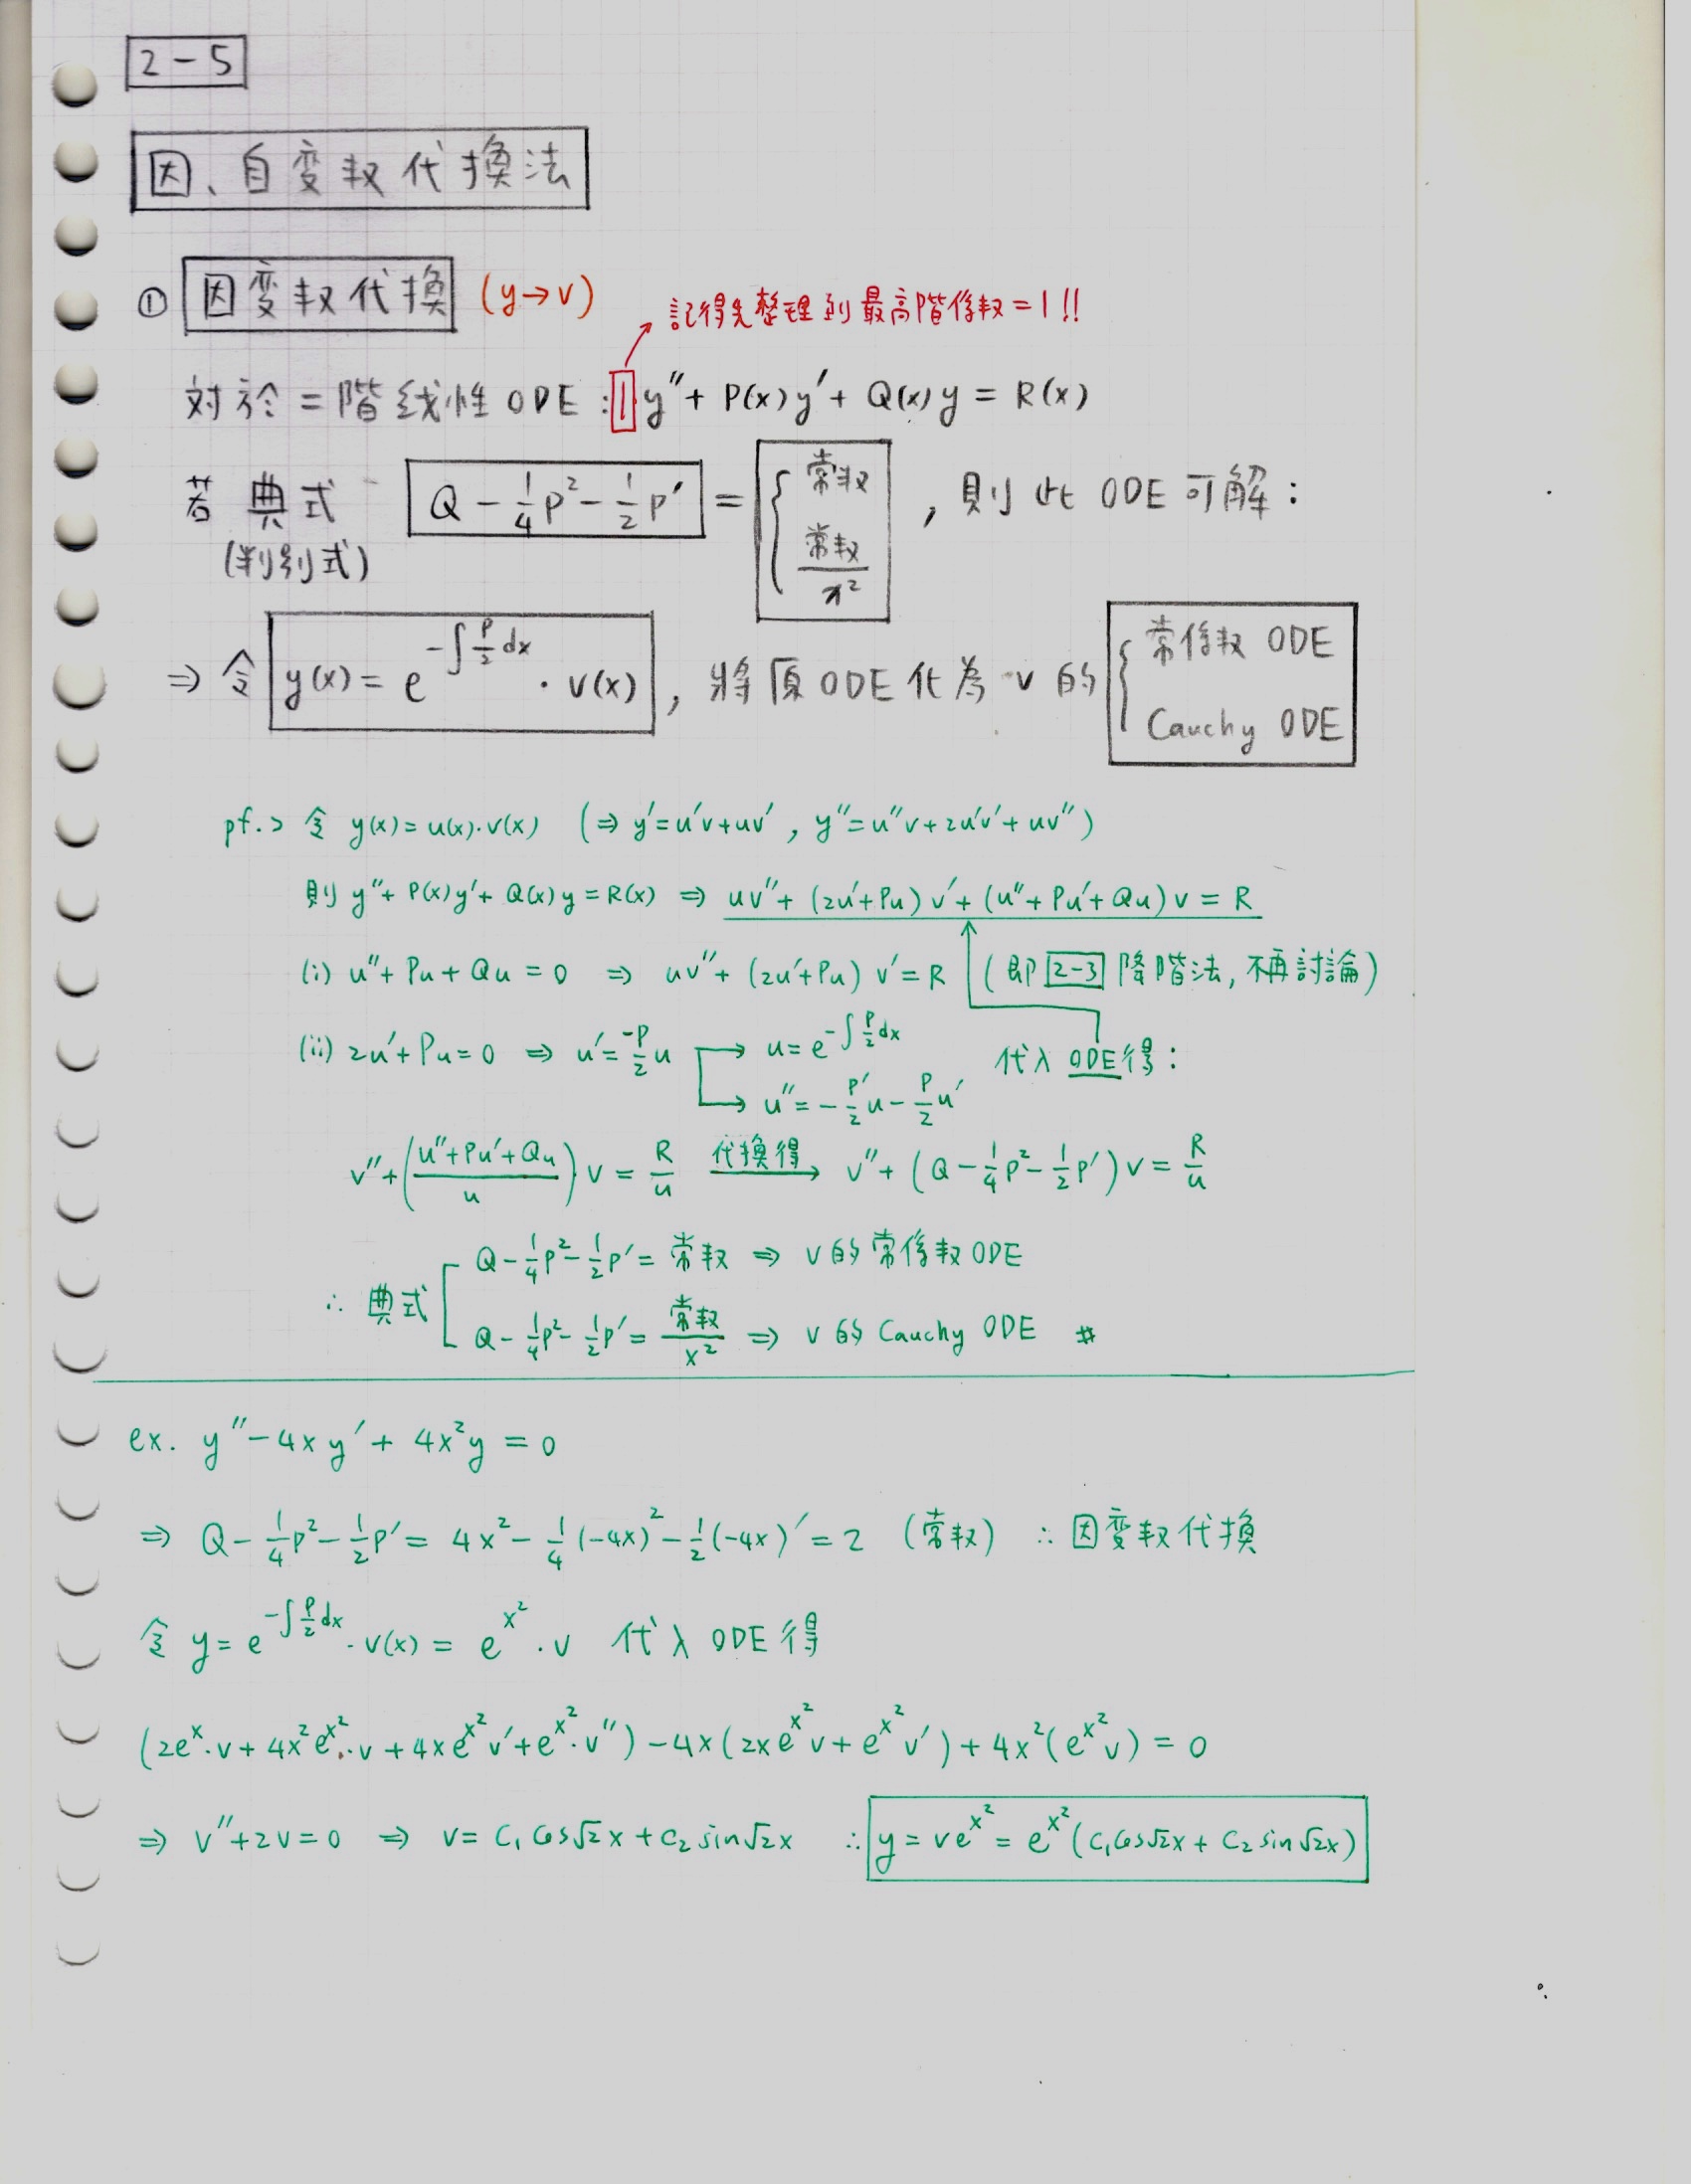 2-5
因、自变数代換法
① 因变数代換 (y→v)
記得先整理到最高階係数=1!!
対於二階线性ODE: 1 y″+ P(x)y′+ Q(x)y = R(x)
若典式 Q - 1/4 P² - 1/2 P′ = { 常数, 常数/x² , 則此ODE可解:
(判別式)
⇒ 令 y(x) = e^(-∫P/2 dx) · v(x) , 將原ODE化為 v 的 { 常係数 ODE, Cauchy ODE
pf.> 令 y(x)=u(x)·v(x) (⇒ y′=u′v+uv′, y″=u″v+2u′v′+uv″)
則 y″+ P(x)y′+ Q(x)y = R(x) ⇒ uv″+ (2u′+Pu)v′+ (u″+Pu′+Qu)v = R
(i) u″+ Pu + Qu = 0 ⇒ uv″+ (2u′+Pu)v′= R (即 2-3 降階法, 不再討論)
(ii) 2u′+Pu=0 ⇒ u′= -P/2 u → u= e^(-∫P/2 dx) → u″= -P′/2 u - P/2 u′ 代入 ODE 得:
v″+ ((u″+Pu′+Qu)/u) v = R/u 代換得→ v″+ (Q - 1/4 P² - 1/2 P′) v = R/u
∴ 典式 [ Q - 1/4 P² - 1/2 P′= 常数 ⇒ v的常係数ODE
Q - 1/4 P² - 1/2 P′= 常数/x² ⇒ v的 Cauchy ODE #
ex. y″-4xy′+ 4x²y = 0
⇒ Q - 1/4 P² - 1/2 P′= 4x² - 1/4 (-4x)² - 1/2 (-4x)′= 2 (常数) ∴ 因变数代換
令 y= e^(-∫P/2 dx) · v(x) = e^(x²) · v 代入 ODE 得
(2e^x·v + 4x²e^(x²)·v + 4xe^(x²)v′+ e^(x²)·v″) - 4x(2xe^(x²)v + e^(x²)v′) + 4x²(e^(x²)v) = 0
⇒ v″+2v=0 ⇒ v= C₁cos√2x + C₂sin√2x ∴ y = ve^(x²) = e^(x²)(C₁cos√2x + C₂sin√2x)